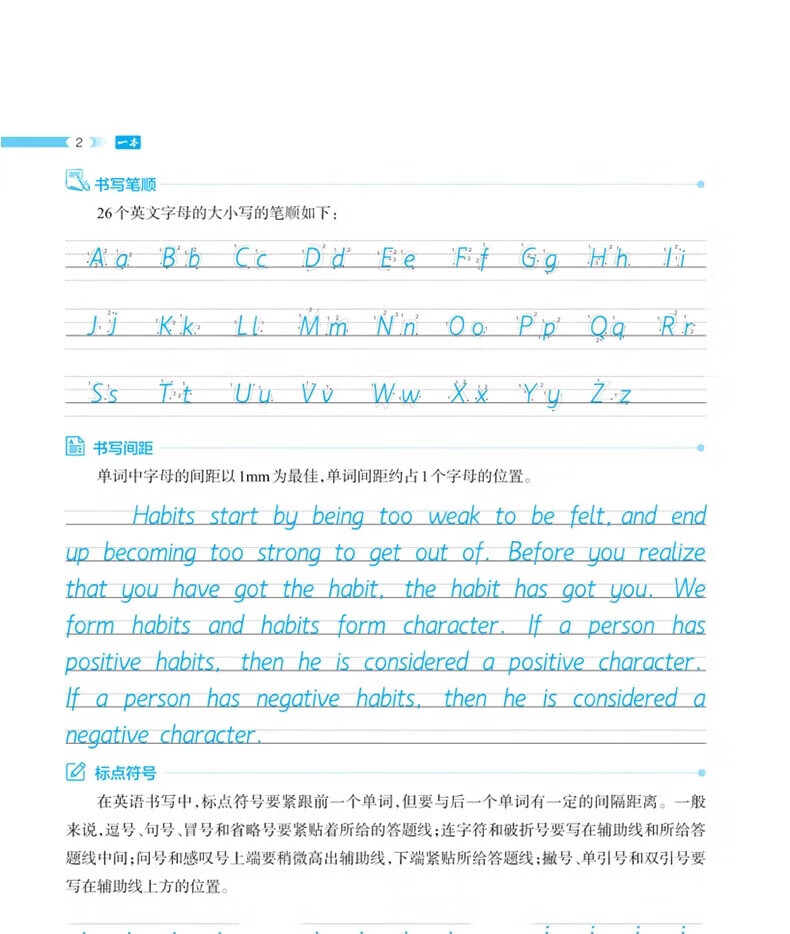 2 一本
书写笔顺
26个英文字母的大小写的笔顺如下:
A a B b C c D d E e F f G g H h I i
J j K k L l M m N n O o P p Q q R r
S s T t U u V v W w X x Y y Z z
书写间距
单词中字母的间距以1mm为最佳,单词间距约占1个字母的位置。
Habits start by being too weak to be felt, and end
up becoming too strong to get out of. Before you realize
that you have got the habit, the habit has got you. We
form habits and habits form character. If a person has
positive habits, then he is considered a positive character.
If a person has negative habits, then he is considered a
negative character.
标点符号
在英语书写中,标点符号要紧跟前一个单词,但要与后一个单词有一定的间隔距离。一般
来说,逗号、句号、冒号和省略号要紧贴着所给的答题线;连字符和破折号要写在辅助线和所给答
题线中间;问号和感叹号上端要稍微高出辅助线,下端紧贴所给答题线;撇号、单引号和双引号要
写在辅助线上方的位置。